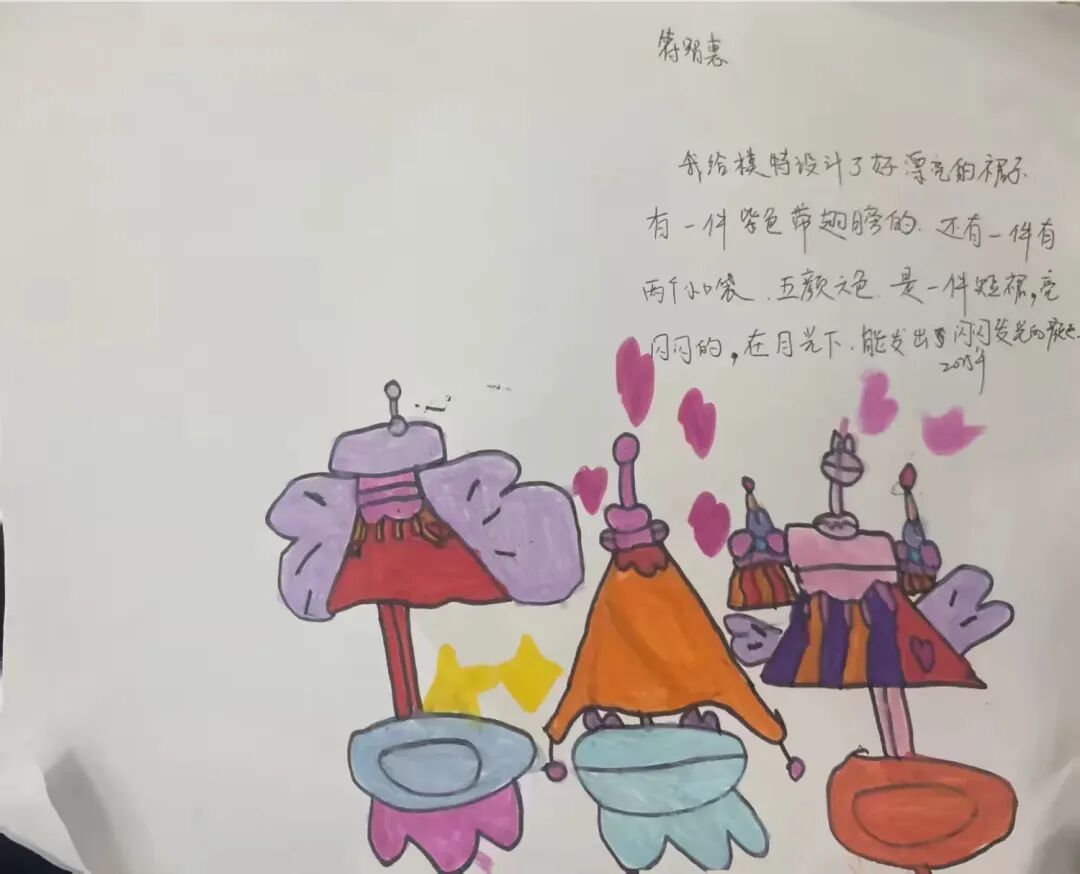 我给模特设计了好漂亮的裙子
有一件紫色带翅膀的.还有一件有
两个小口袋.五颜六色.是一件短裙,亮
闪闪的,在月光下.能发出闪闪发光的